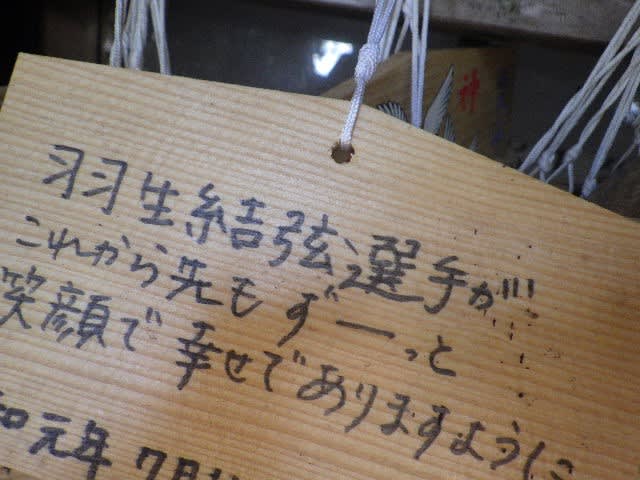 羽生結弦選手が
これから先もずーっと
笑顔で幸せでありますように
和元年 7月
神